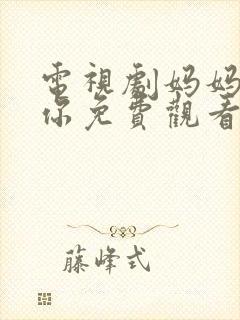 電視劇妈妈
你免費觀看
藤峰式